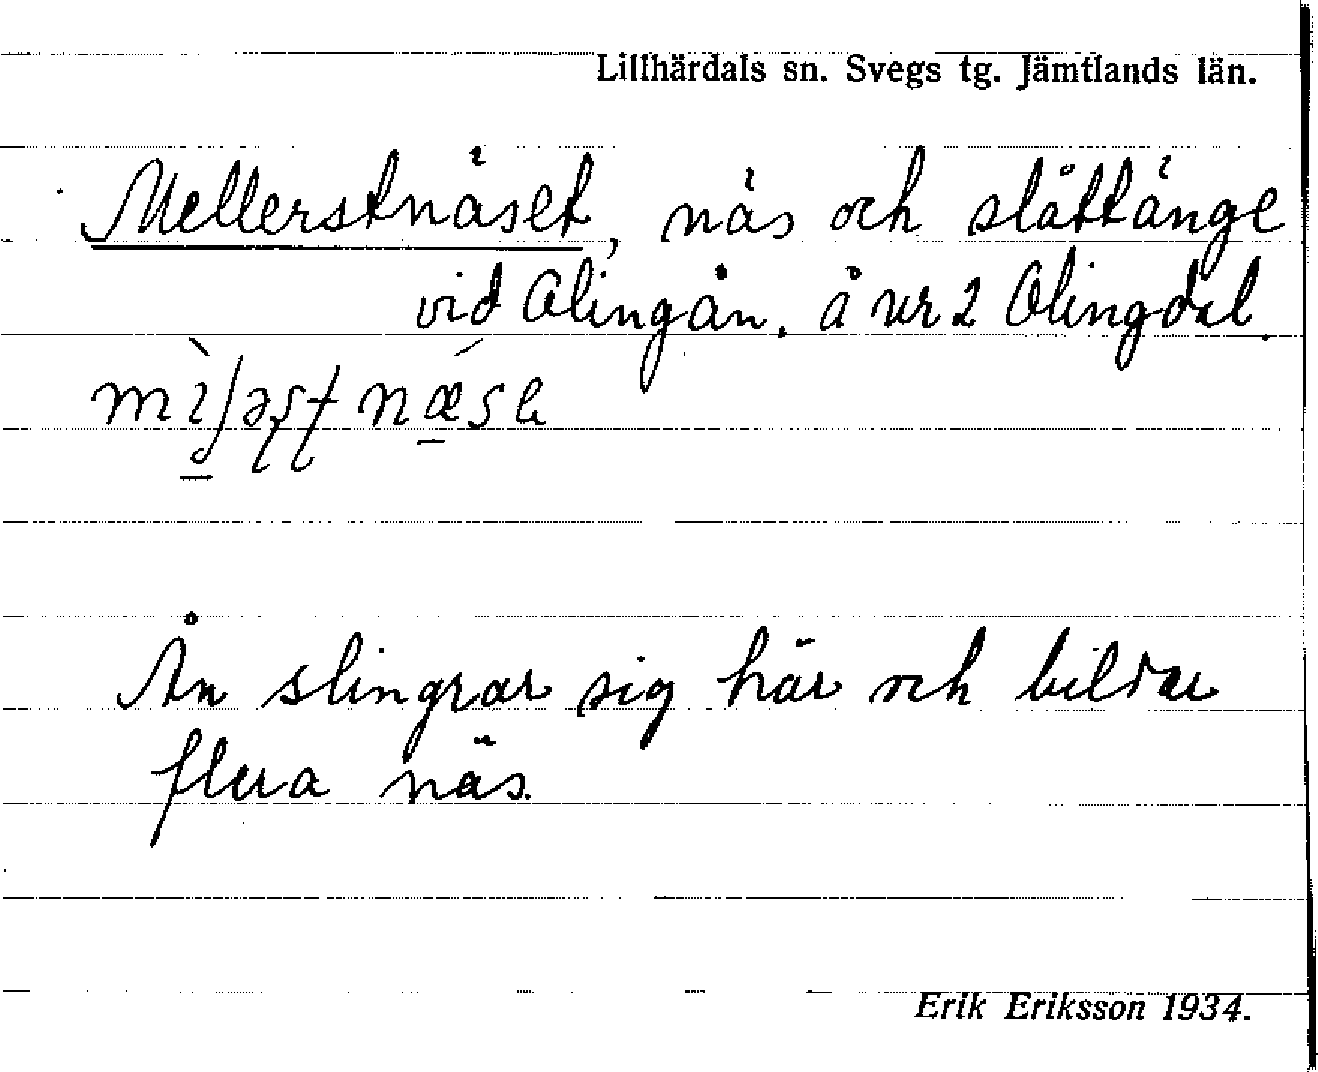 Lillhärdals sn. Svegs tg. Jämtlands län.
Mellerstnäset, näs och slåttänge
vid Olingån. å nr 2 Olingdal.
Ån slingrar sig här och bildar
flera näs.
Erik Eriksson 1934.